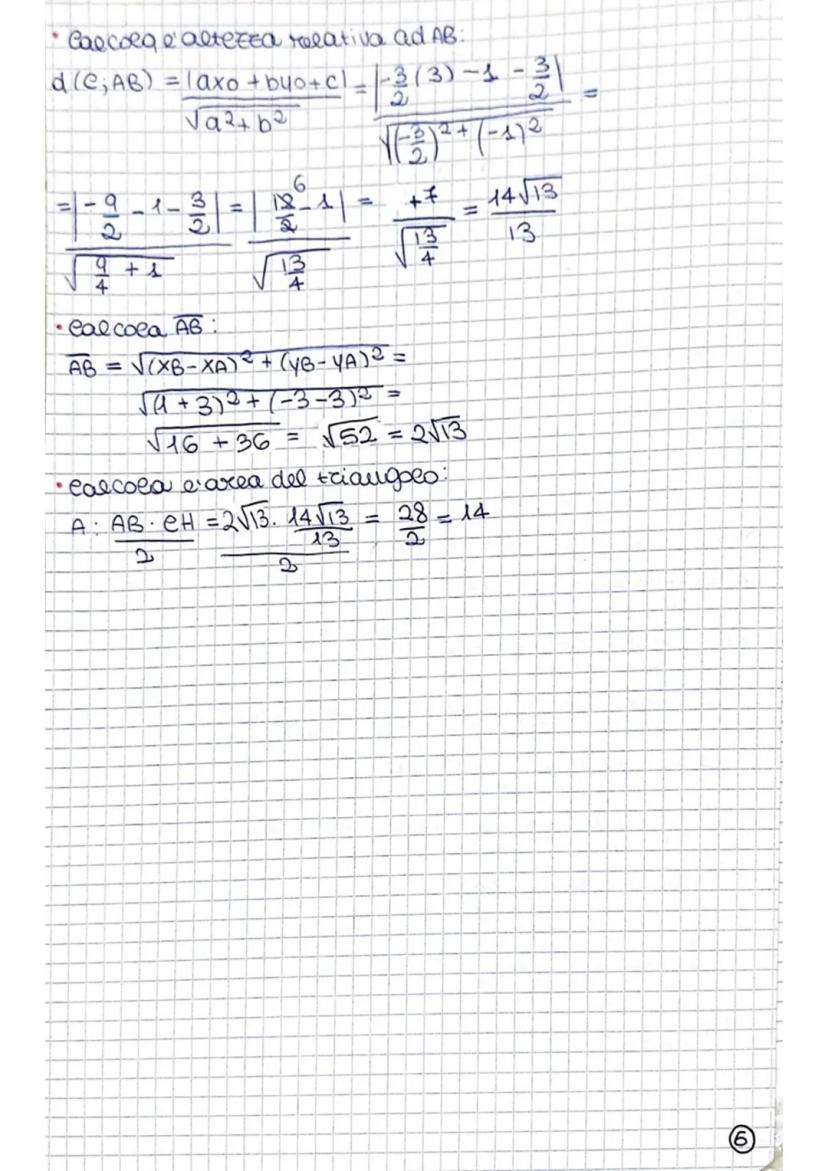 • Calcola l'altezza relativa ad AB:
d(C;AB) = |ax0 + by0 + c| / √a²+b² = |-3/2 (3) - 1 - 3/2| / √(-3/2)² + (-1)² =
= |-9/2 - 1 - 3/2| / √9/4 + 1 = |12/2 6 - 1| / √13/4 = +7 / √13/4 = 14√13 / 13
• calcola AB:
AB = √(XB-XA)² + (YB-YA)² =
√(1+3)² + (-3-3)² =
√16 + 36 = √52 = 2√13
• calcola l'area del triangolo:
A: AB · CH / 2 = 2√13 · 14√13/13 / 2 = 28/2 = 14
6